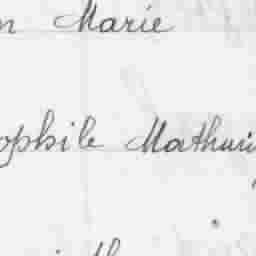 n Marie
ophile Mathurin